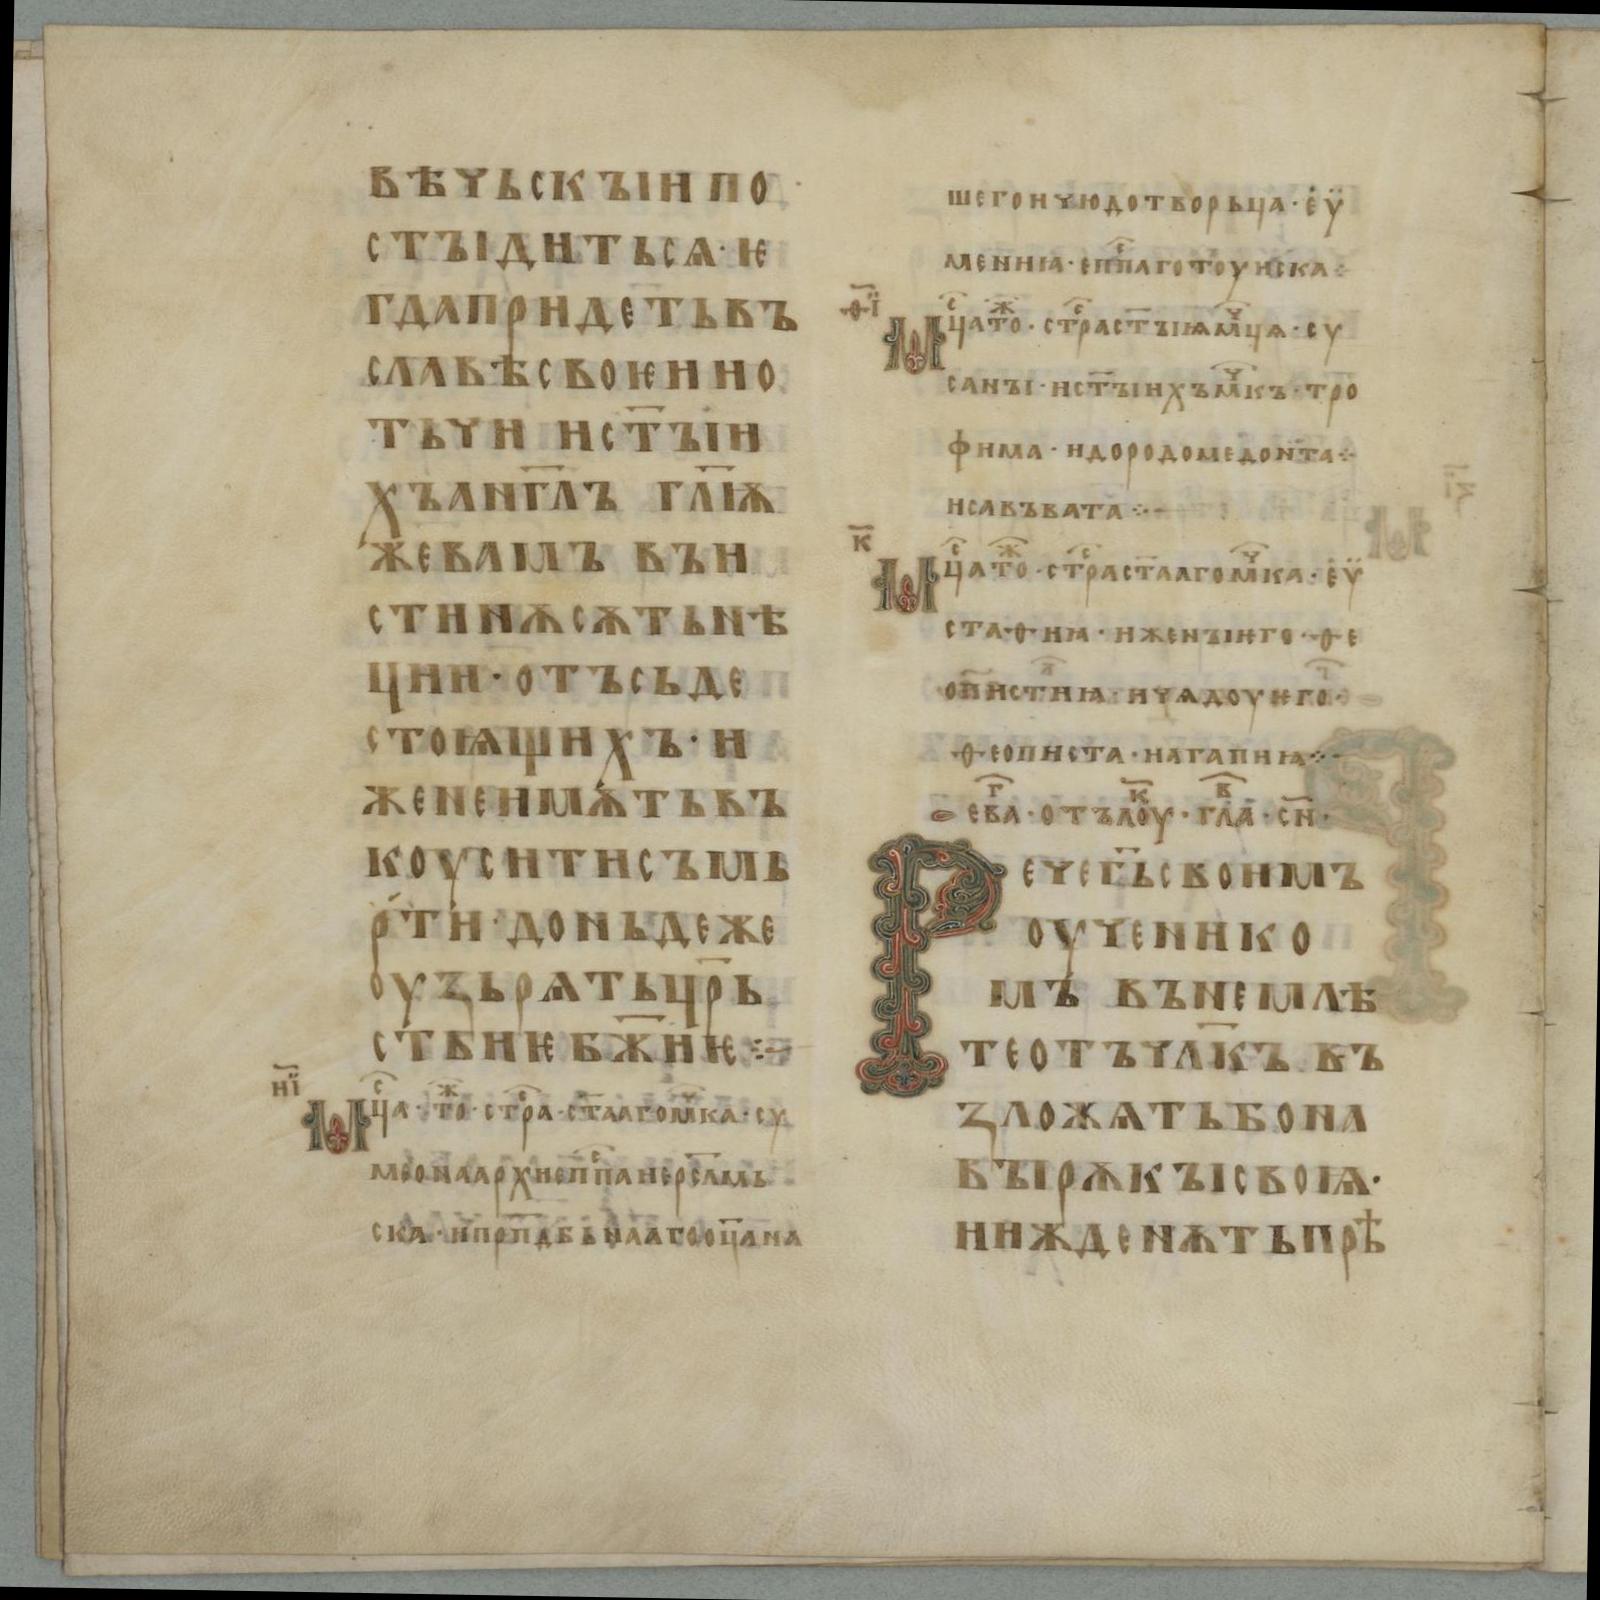 вѣчьскꙑи по
стꙑдитьсѧ · ѥ
гдапридетьвъ
славѣсвоѥиио
тьчи ист҃ꙑи
хъанг҃лъ гл҃ѭ
жевамъ въи
стинѫсѫтьнѣ
ции · отъсьде
стоѩщихъ · и
женеимѫтьвъ
коуситисъмь
рти · доньдеже
оузьрѧтьцр҃ь
ствиѥбж҃иѥ ⁘
н҃і
Мцⷭ҇а · тоⷤ · стрⷭ҇а · ст҃аагомⷱ҇ка · су
меонаархиепⷭ҇паиерсл҃мь
ска · ипрп҃дбьнаагооц҃ана
шегоичюдотворьца · еѵ
мениꙗ · епⷭ҇паготоуиска ⁘
ѳ҃і
Мцⷭ҇атоⷤ · стрⷭ҇аст҃ꙑѩмⷱ҇цѧ · су
санꙑ · ист҃ꙑихъмⷱ҇къ · тро
фима · идородомедонта ⁘
исавъвата ⁘
к҃
Мцⷭ҇атоⷤ · стрⷭ҇аст҃аагомⷱ҇ка · еѵ
стаѳиꙗ · иженꙑѥго · ѳе
описттиꙗ · ичѧдоуѥго ·
ѳеописта · иагапиꙗ ⁘
еваⷢ · отълоуⷦ · глаⷡ · сн҃ ·
Речег҃ьсвоимъ
оученико
мъ вънемлѣ
теотъчл҃къ въ
зложѧтьбона
вꙑрѫкꙑсвоѩ ·
иижденѫтьпрѣ